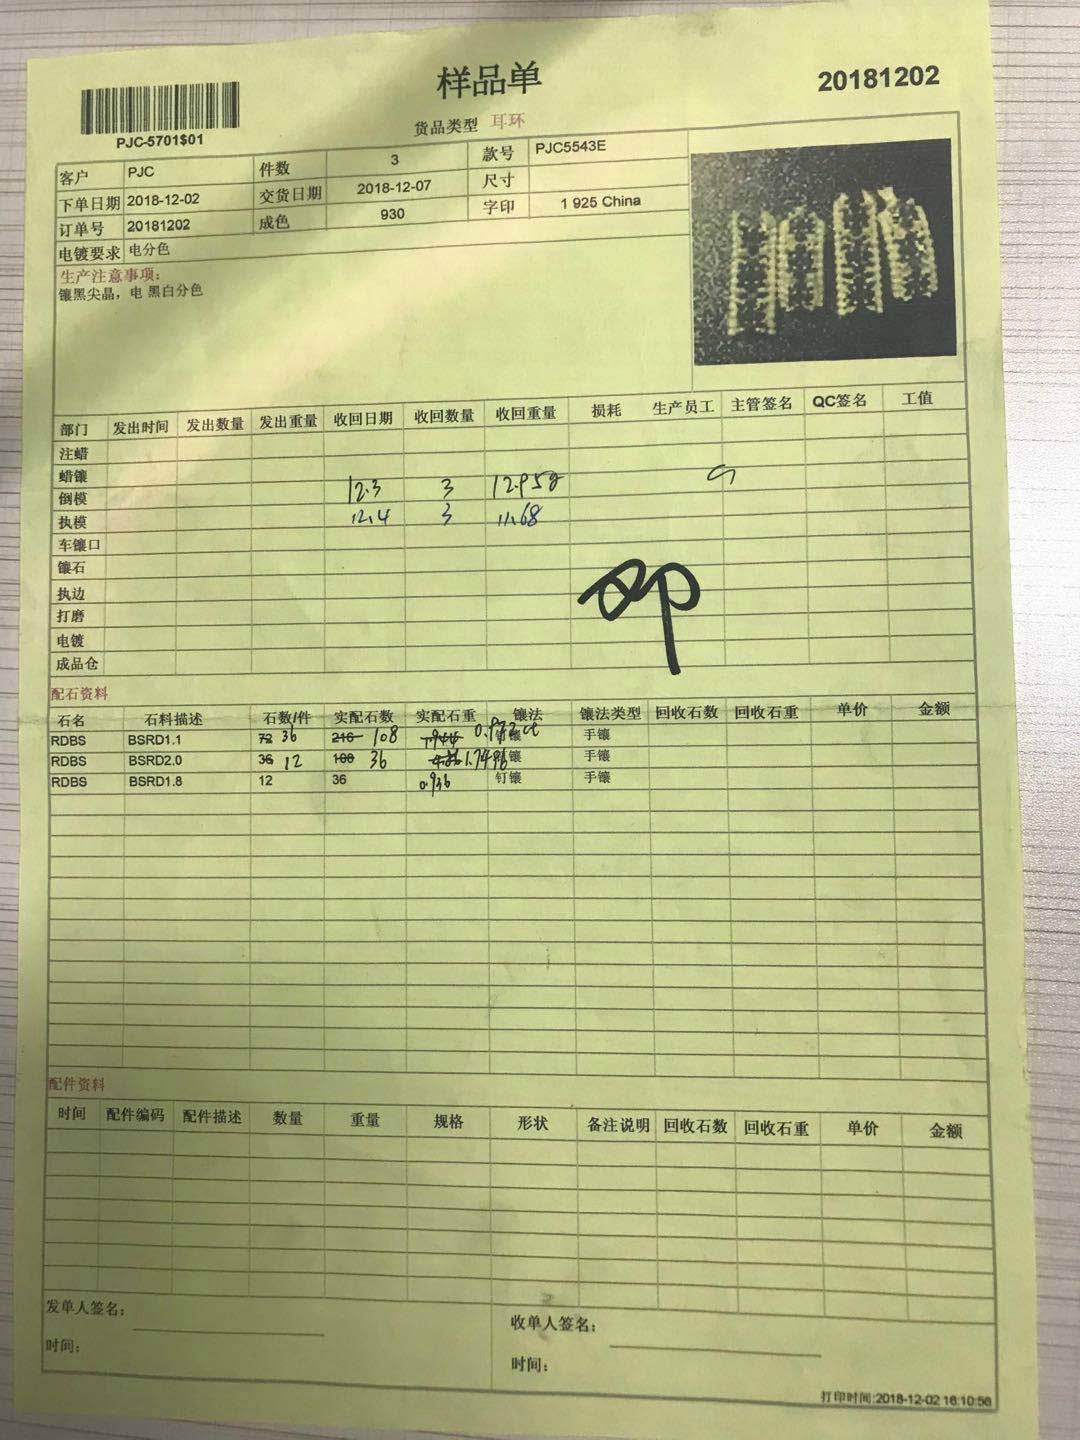 样品单
20181202
PJC-5701$01
货品类型 耳环
客户 PJC 件数 3 款号 PJC5543E
下单日期 2018-12-02 交货日期 2018-12-07 尺寸
订单号 20181202 成色 930 字印 1 925 China
电镀要求 电分色
生产注意事项:
镶黑尖晶，电 黑白分色
部门 发出时间 发出数量 发出重量 收回日期 收回数量 收回重量 损耗 生产员工 主管签名 QC签名 工值
注蜡
蜡镶
倒模 12.3 3 12.95g
执模 12.4 3 11.68
车镶口
镶石
执边
打磨
电镀
成品仓
配石资料
石名 石料描述 石数/件 实配石数 实配石重 镶法 镶法类型 回收石数 回收石重 单价 金额
RDBS BSRD1.1 72 36 216 108 1.944 镶 手镶
RDBS BSRD2.0 36 12 108 36 镶 手镶
RDBS BSRD1.8 12 36 0.936 钉镶 手镶
配件资料
时间 配件编码 配件描述 数量 重量 规格 形状 备注说明 回收石数 回收石重 单价 金额
发单人签名: 收单人签名:
时间: 时间:
打印时间:2018-12-02 16:10:56